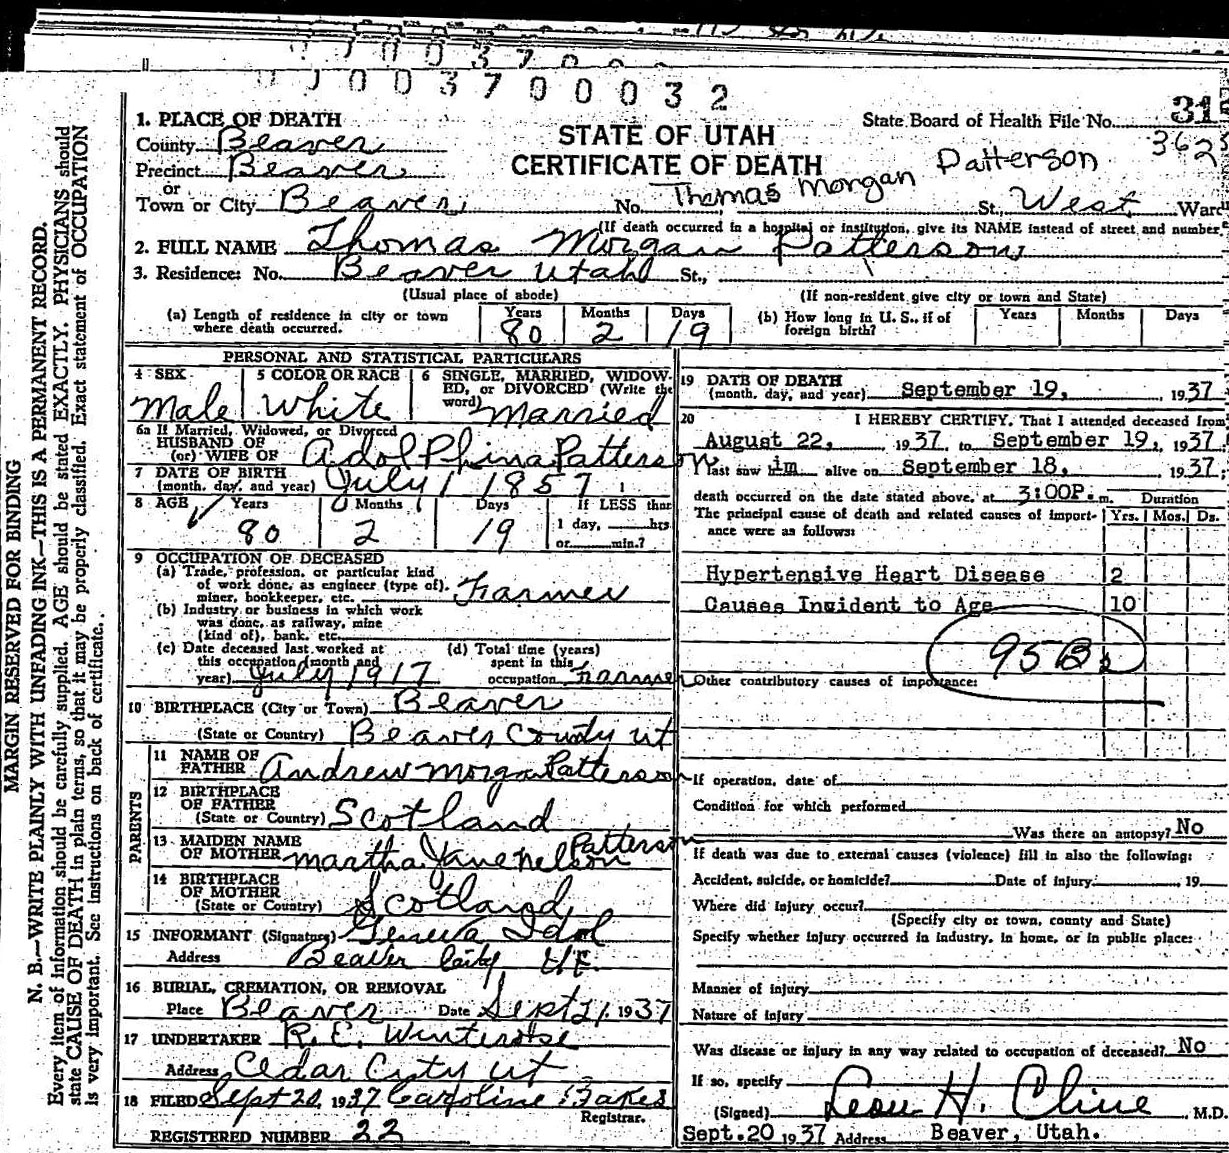 00037000
0003700032
1. PLACE OF DEATH
County Beaver
Precinct Beaver
or
Town or City Beaver
STATE OF UTAH
CERTIFICATE OF DEATH
State Board of Health File No. 315
362
Thomas Morgan Patterson
No. St., West Ward
(If death occurred in a hospital or institution, give its NAME instead of street and number.
2. FULL NAME Thomas Morgan Patterson
3. Residence: No. Beaver Utah St.,
(Usual place of abode) (If non-resident give city or town and State)
(a) Length of residence in city or town where death occurred. Years 80 Months 2 Days 19
(b) How long in U. S., if of foreign birth? Years Months Days
PERSONAL AND STATISTICAL PARTICULARS
4 SEX Male
5 COLOR OR RACE White
6 SINGLE, MARRIED, WIDOWED, or DIVORCED (Write the word) Married
6a If Married, Widowed, or Divorced
HUSBAND OF
(or) WIFE OF Adolphina Patterson
7 DATE OF BIRTH
(month, day, and year) July 1 1857
8 AGE Years 80 Months 2 Days 19
If LESS than
1 day, hrs
or min.?
9 OCCUPATION OF DECEASED
(a) Trade, profession, or particular kind
of work done, as engineer (type of),
miner, bookkeeper, etc. Farmer
(b) Industry or business in which work
was done, as railway, mine
(kind of), bank, etc.
(c) Date deceased last worked at
this occupation (month and
year) July 1917
(d) Total time (years)
spent in this
occupation Farmer
10 BIRTHPLACE (City or Town) Beaver
(State or Country) Beaver County ut
PARENTS
11 NAME OF
FATHER Andrew Morgan Patterson
12 BIRTHPLACE
OF FATHER
(State or Country) Scotland
13 MAIDEN NAME
OF MOTHER Martha Jane Nelson Patterson
14 BIRTHPLACE
OF MOTHER
(State or Country) Scotland
15 INFORMANT (Signature) Geneva Idol
Address Beaver City Ut.
16 BURIAL, CREMATION, OR REMOVAL
Place Beaver Date Sept 21, 1937
17 UNDERTAKER R. E. Winterose
Address Cedar City ut
18 FILED Sept 20, 1937 Caroline Bakes
Registrar.
REGISTERED NUMBER 22
19 DATE OF DEATH
(month, day, and year) September 19, 1937.
20 I HEREBY CERTIFY, That I attended deceased from
August 22, 1937 to September 19, 1937;
I last saw him alive on September 18, 1937;
death occurred on the date stated above, at 3:00P.m. Duration
The principal cause of death and related causes of importance were as follows: Yrs. Mos. Ds.
Hypertensive Heart Disease 2
Causes Incident to Age 10
95B
Other contributory causes of importance:
If operation, date of
Condition for which performed
Was there an autopsy? No
If death was due to external causes (violence) fill in also the following:
Accident, suicide, or homicide? Date of injury 19
Where did injury occur?
(Specify city or town, county and State)
Specify whether injury occurred in industry, in home, or in public place:
Manner of injury
Nature of injury
Was disease or injury in any way related to occupation of deceased? No
If so, specify
(Signed) Leon H. Cline M.D.
Sept. 20 1937 Address Beaver, Utah.
MARGIN RESERVED FOR BINDING
N. B.—WRITE PLAINLY WITH UNFADING INK—THIS IS A PERMANENT RECORD.
Every item of information should be carefully supplied. AGE should be stated EXACTLY. PHYSICIANS should
state CAUSE OF DEATH in plain terms, so that it may be properly classified. Exact statement of OCCUPATION
is very important. See instructions on back of certificate.